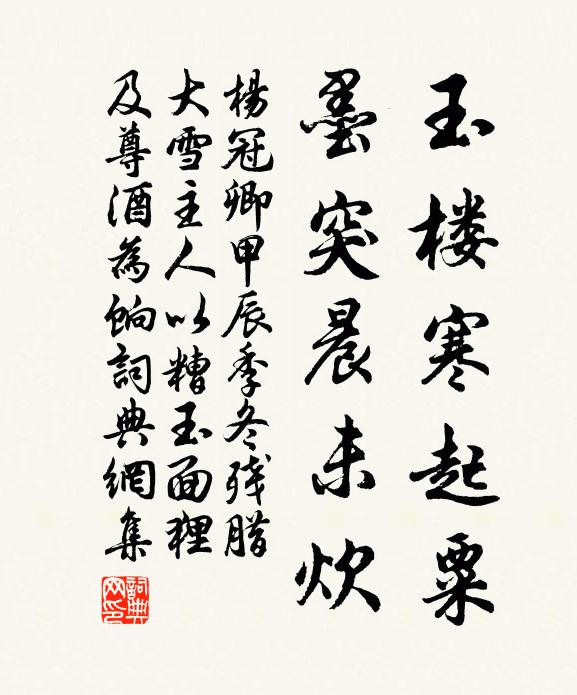 玉楼寒起粟
墨突晨未炊
楊冠卿甲辰季冬残腊
大雪主人以糟玉面狸
及尊酒為餉詞典網集
詞典網印